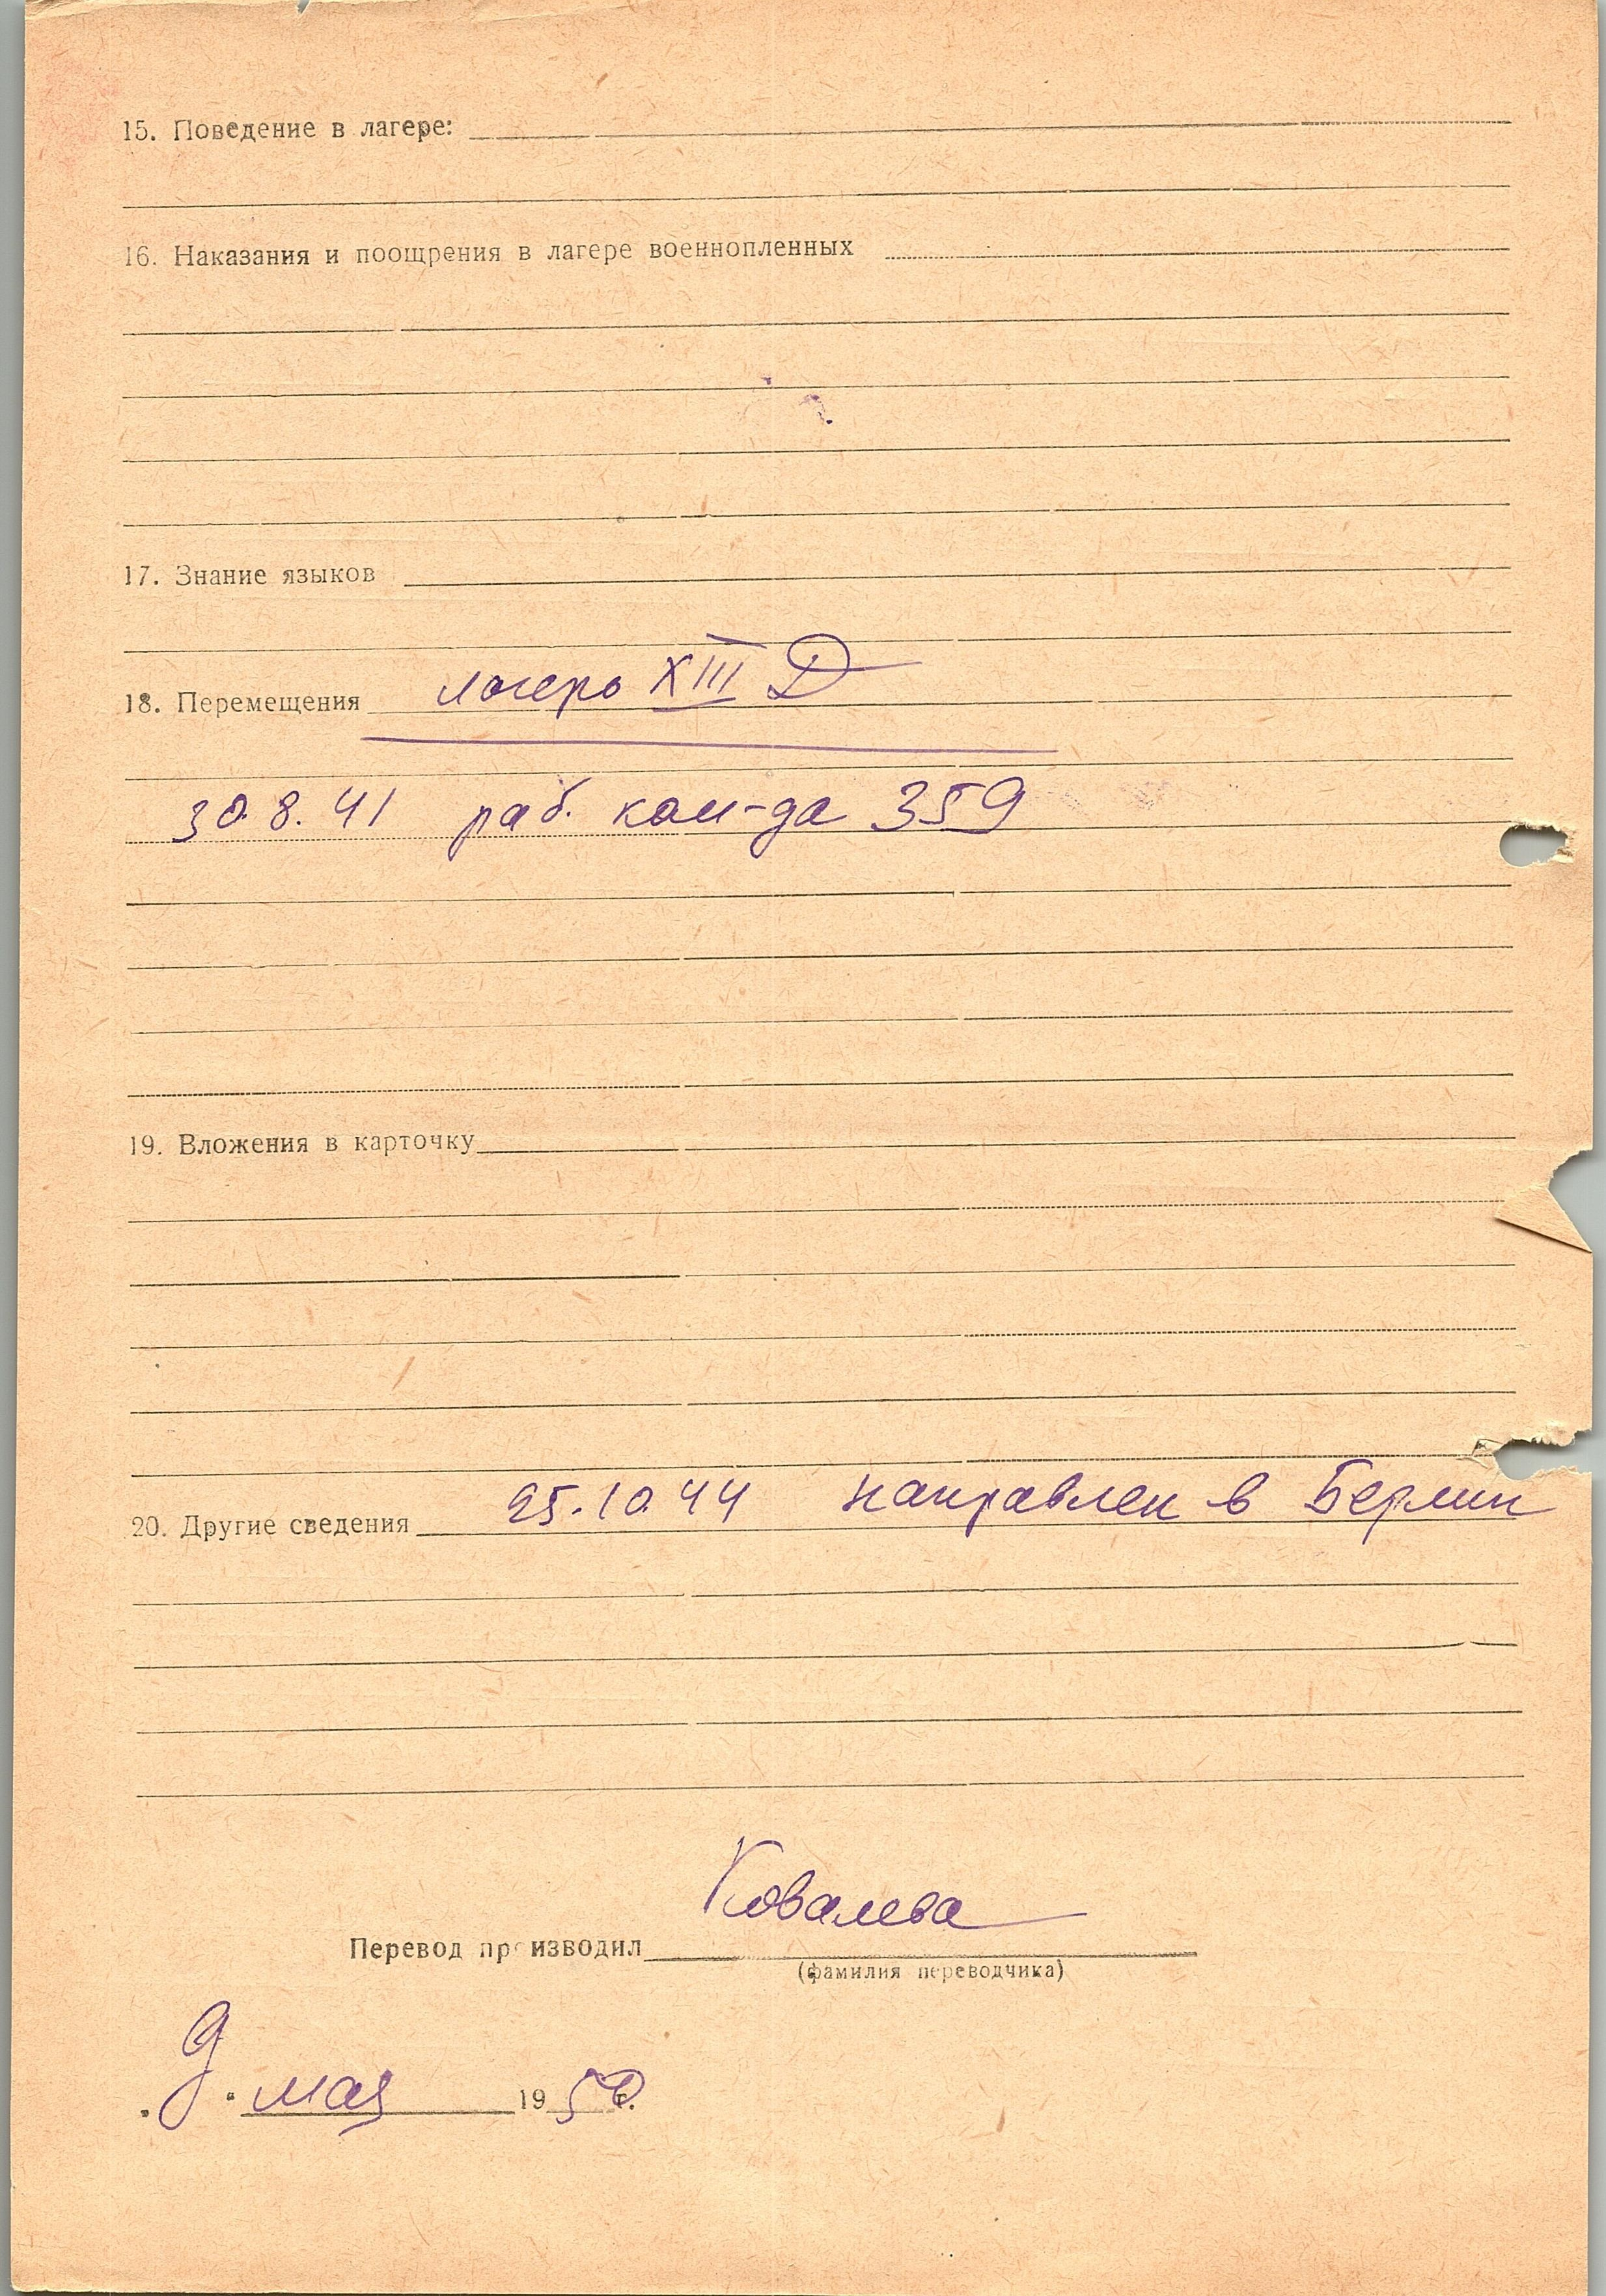 15. Поведение в лагере:
16. Наказания и поощрения в лагере военнопленных
17. Знание языков
18. Перемещения лагерь XIII D
30.8.41 раб. ком-да 359
19. Вложения в карточку
20. Другие сведения 25.10.44 направлен в Берлин
Ковалева
Перевод производил
(фамилия переводчика)
„9“ мая 1950 г.